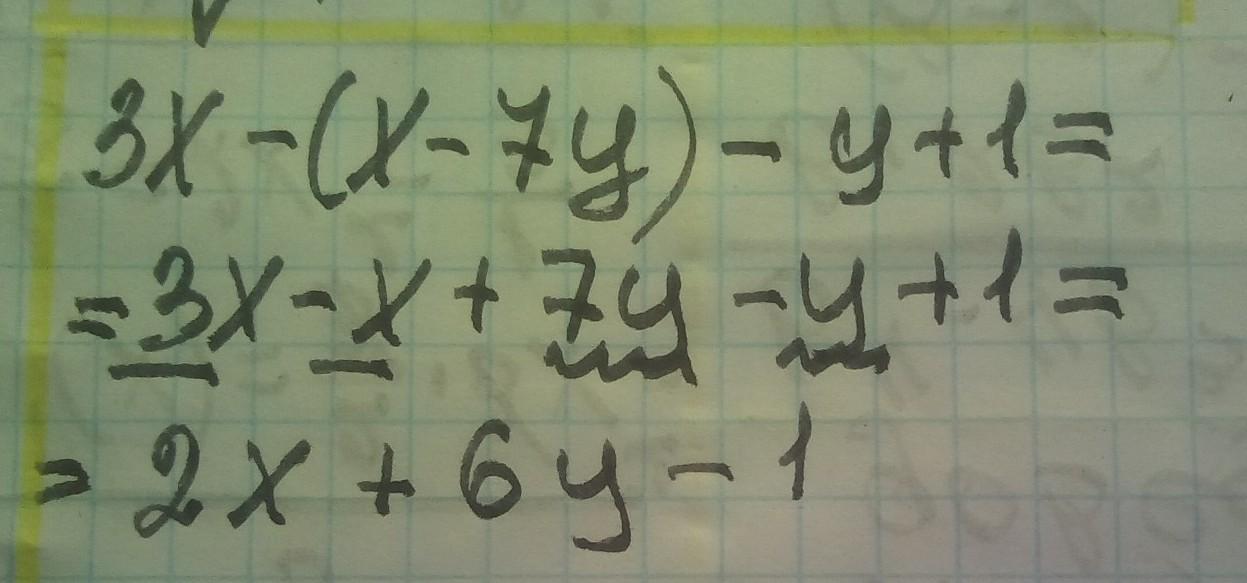 3x - (x - 7y) - y + 1 =
= 3x - x + 7y - y + 1 =
= 2x + 6y - 1